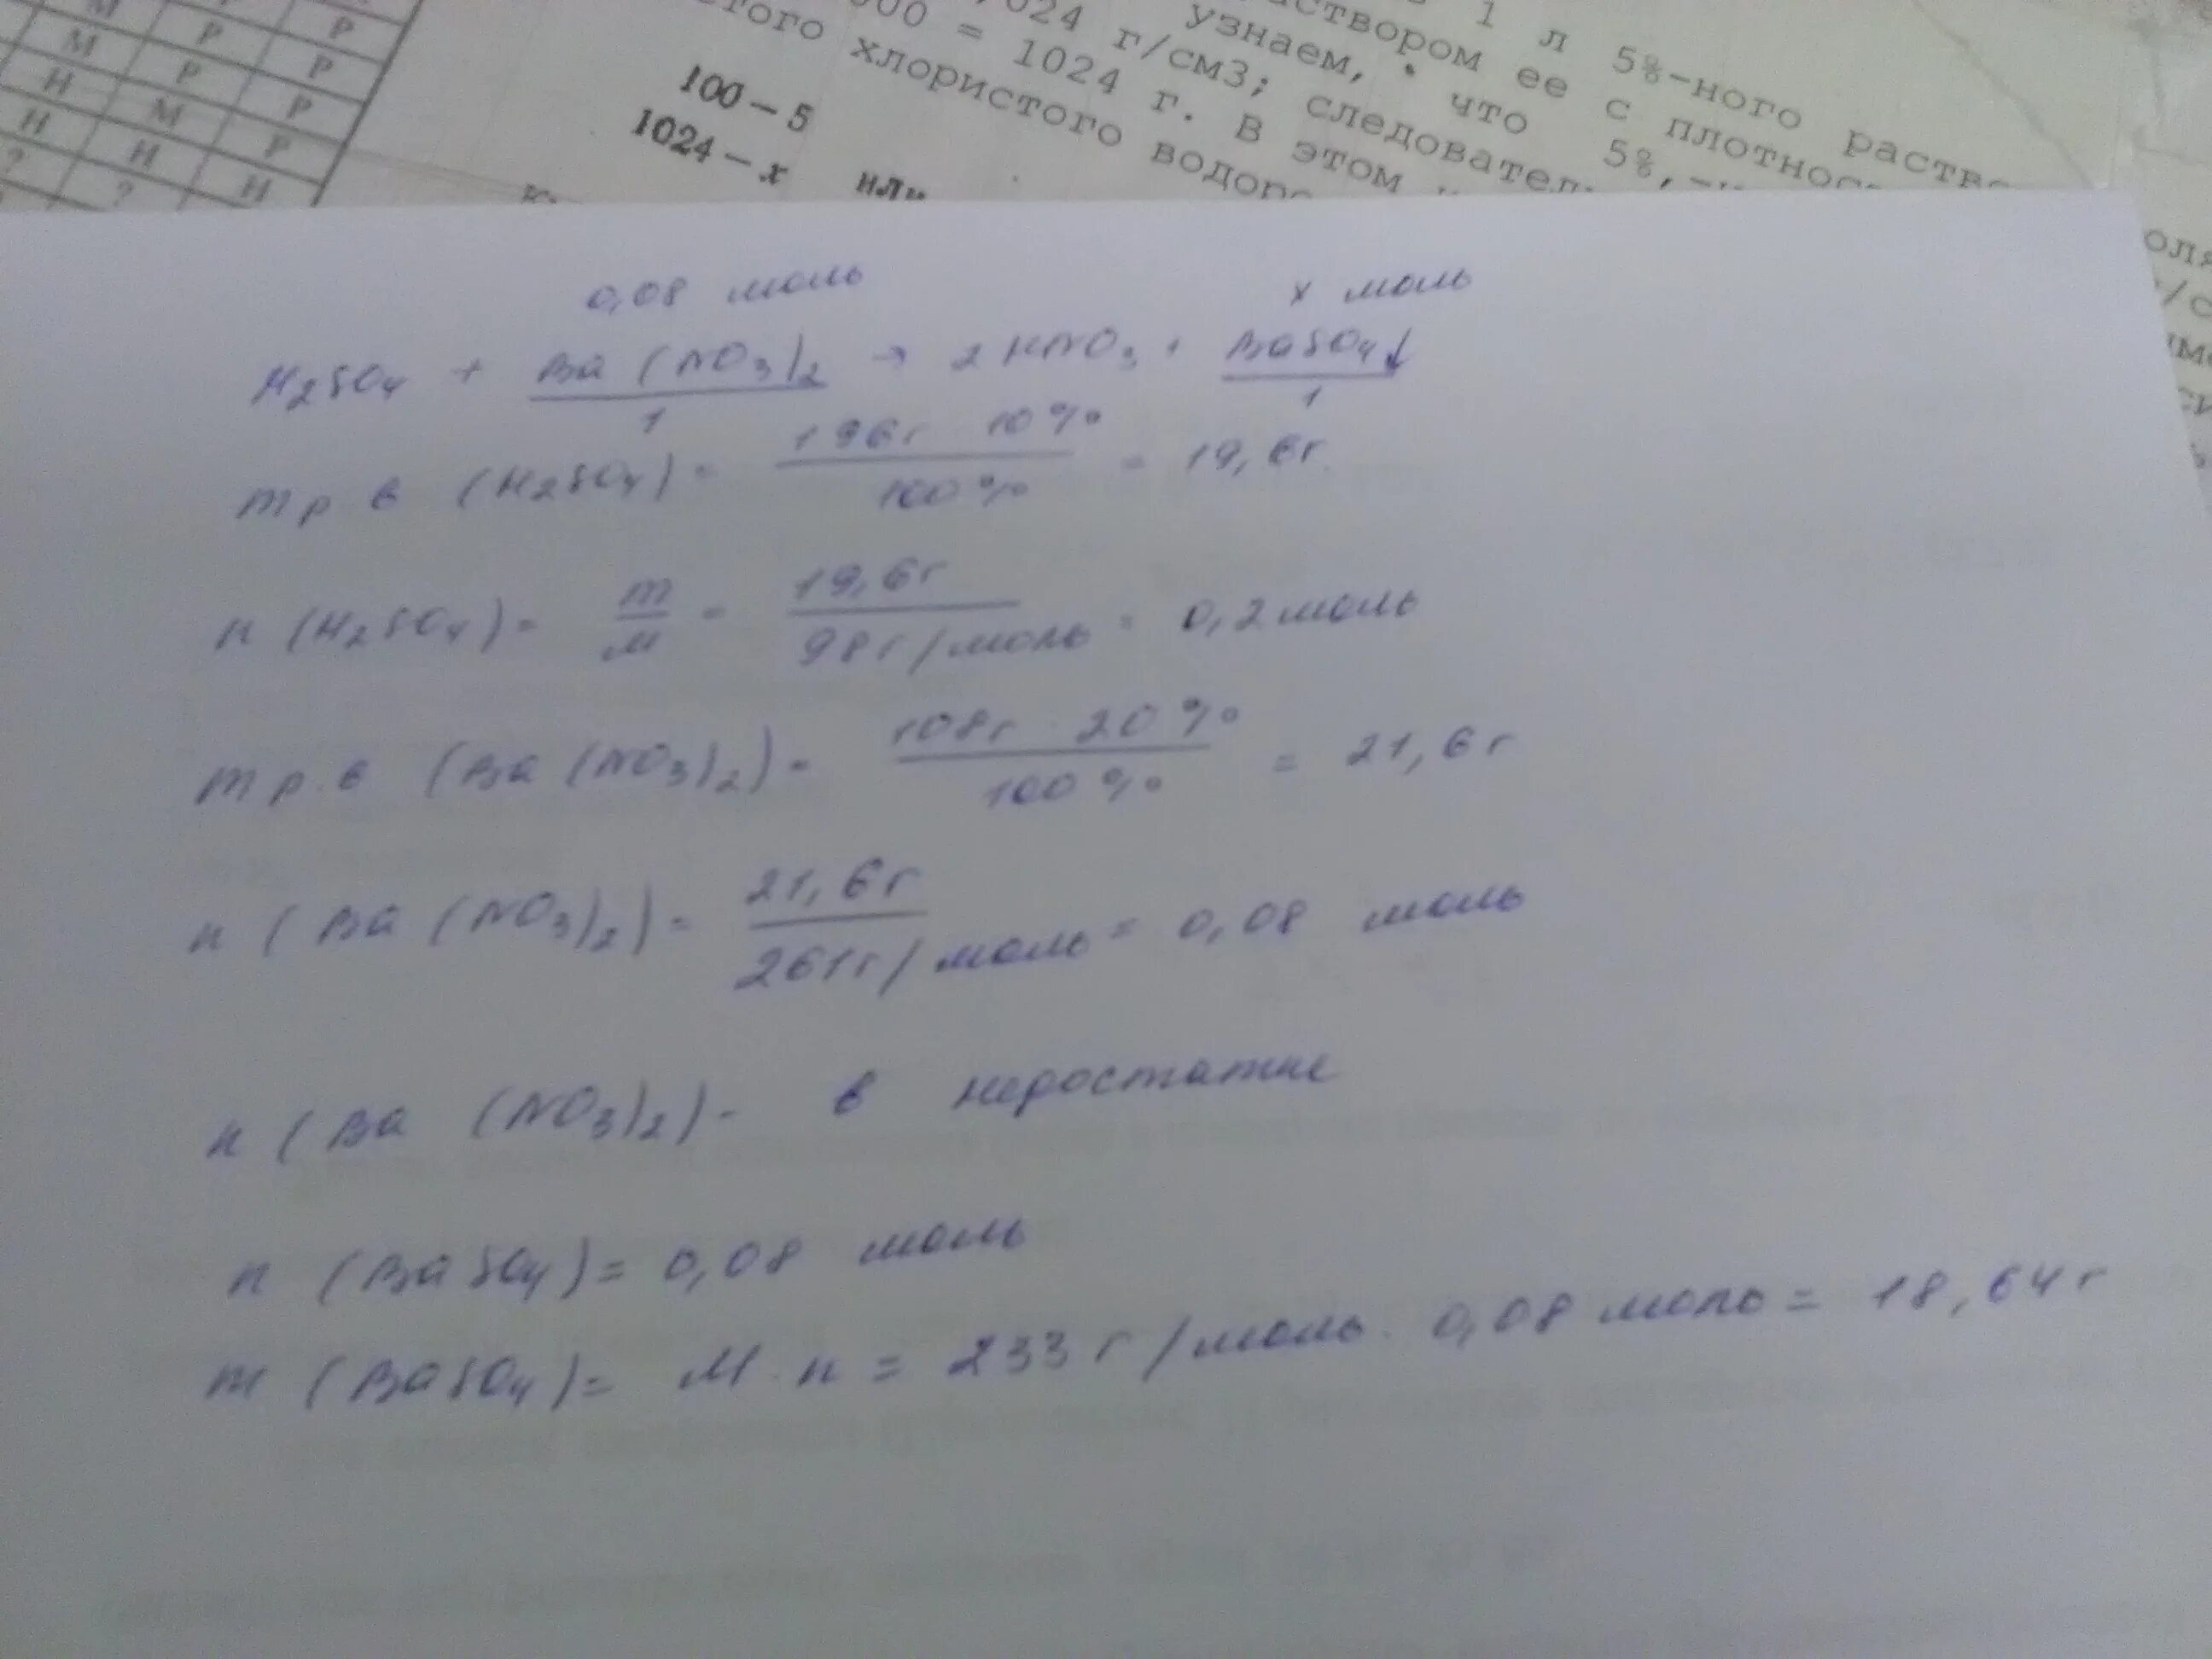 М Р Р
М Р Р
Н Р Р
Н М Р
? Н Р
? Н
1 л 5%-ного раство
створом ее с плотнос
узнаем, что 5%,-н
024 г/см3; следовател
000 = 1024 г. В этом
того хлористого водоро
100 – 5
1024 – x или
0,08 моль x моль
H2SO4 + Ba(NO3)2 → 2HNO3 + BaSO4↓
1 1
m р.в (H2SO4) = 196г · 10% / 100% = 19,6г.
n (H2SO4) = m/M = 19,6г / 98г/моль = 0,2 моль
m р.в (Ba(NO3)2) = 108г · 20% / 100% = 21,6г
n (Ba(NO3)2) = 21,6г / 261г/моль = 0,08 моль
n (Ba(NO3)2) - в недостатке
n (BaSO4) = 0,08 моль
m (BaSO4) = M · n = 233 г/моль · 0,08 моль = 18,64 г